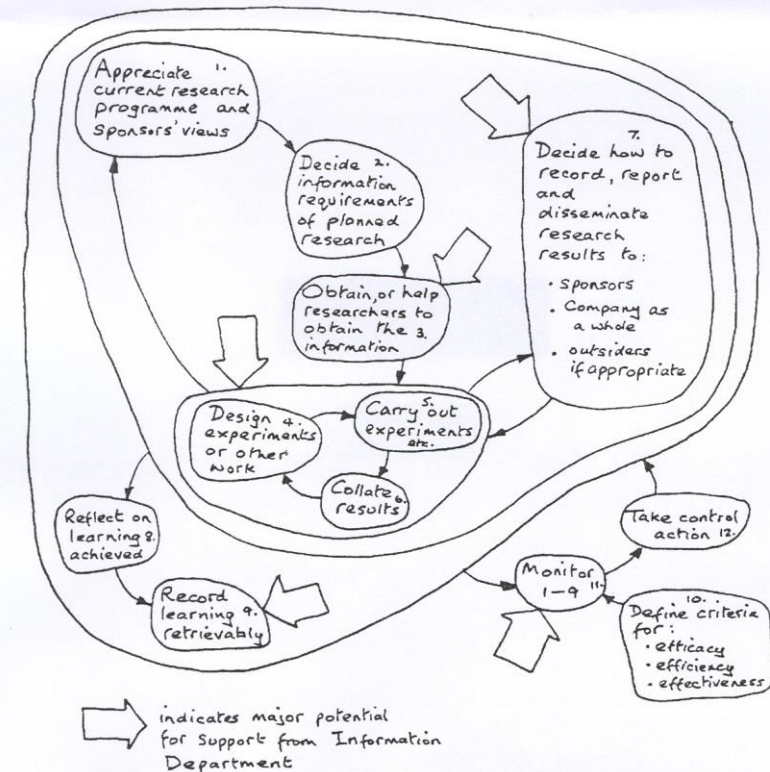 Appreciate 1.
current research
programme and
sponsors' views
Decide 2.
information
requirements
of planned
research
Obtain, or help
researchers to
obtain the 3.
information
Design 4.
experiments
or other
work
Carry 5. out
experiments
etc.
Collate 6.
results
7.
Decide how to
record, report
and
disseminate
research
results to:
• sponsors
• Company as
a whole
• outsiders
if appropriate
Reflect on
learning 8.
achieved
Record
learning 9.
retrievably
Monitor
1-9 11.
Take control
action 12.
10.
Define criteria
for:
• efficacy
• efficiency
• effectiveness
indicates major potential
for support from Information
Department